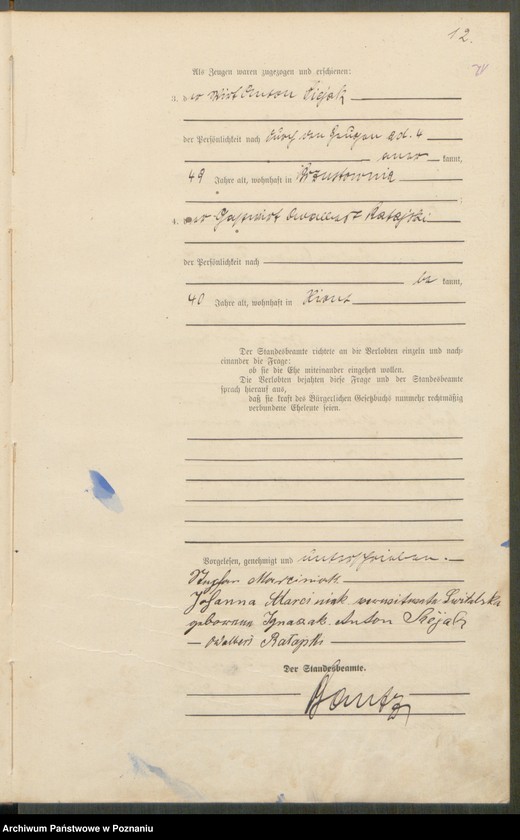 12.
Als Zeugen waren zugezogen und erschienen:
3. der Wirt Anton
der Persönlichkeit nach durch den Zeugen ad. 4
aner kannt,
49 Jahre alt, wohnhaft in Brzustownia
4. der Gastwirt Ratajski
der Persönlichkeit nach
be kannt,
40 Jahre alt, wohnhaft in Xions
Der Standesbeamte richtete an die Verlobten einzeln und nach-
einander die Frage:
ob sie die Ehe miteinander eingehen wollen.
Die Verlobten bejahten diese Frage und der Standesbeamte
sprach hierauf aus,
daß sie kraft des Bürgerlichen Gesetzbuchs nunmehr rechtmäßig
verbundene Eheleute seien.
Vorgelesen, genehmigt und unterschrieben.
Marciniak
Johanna Marciniak verwitwete
geborene Ignaszak. Anton
Ratajski
Der Standesbeamte.
Archiwum Państwowe w Poznaniu